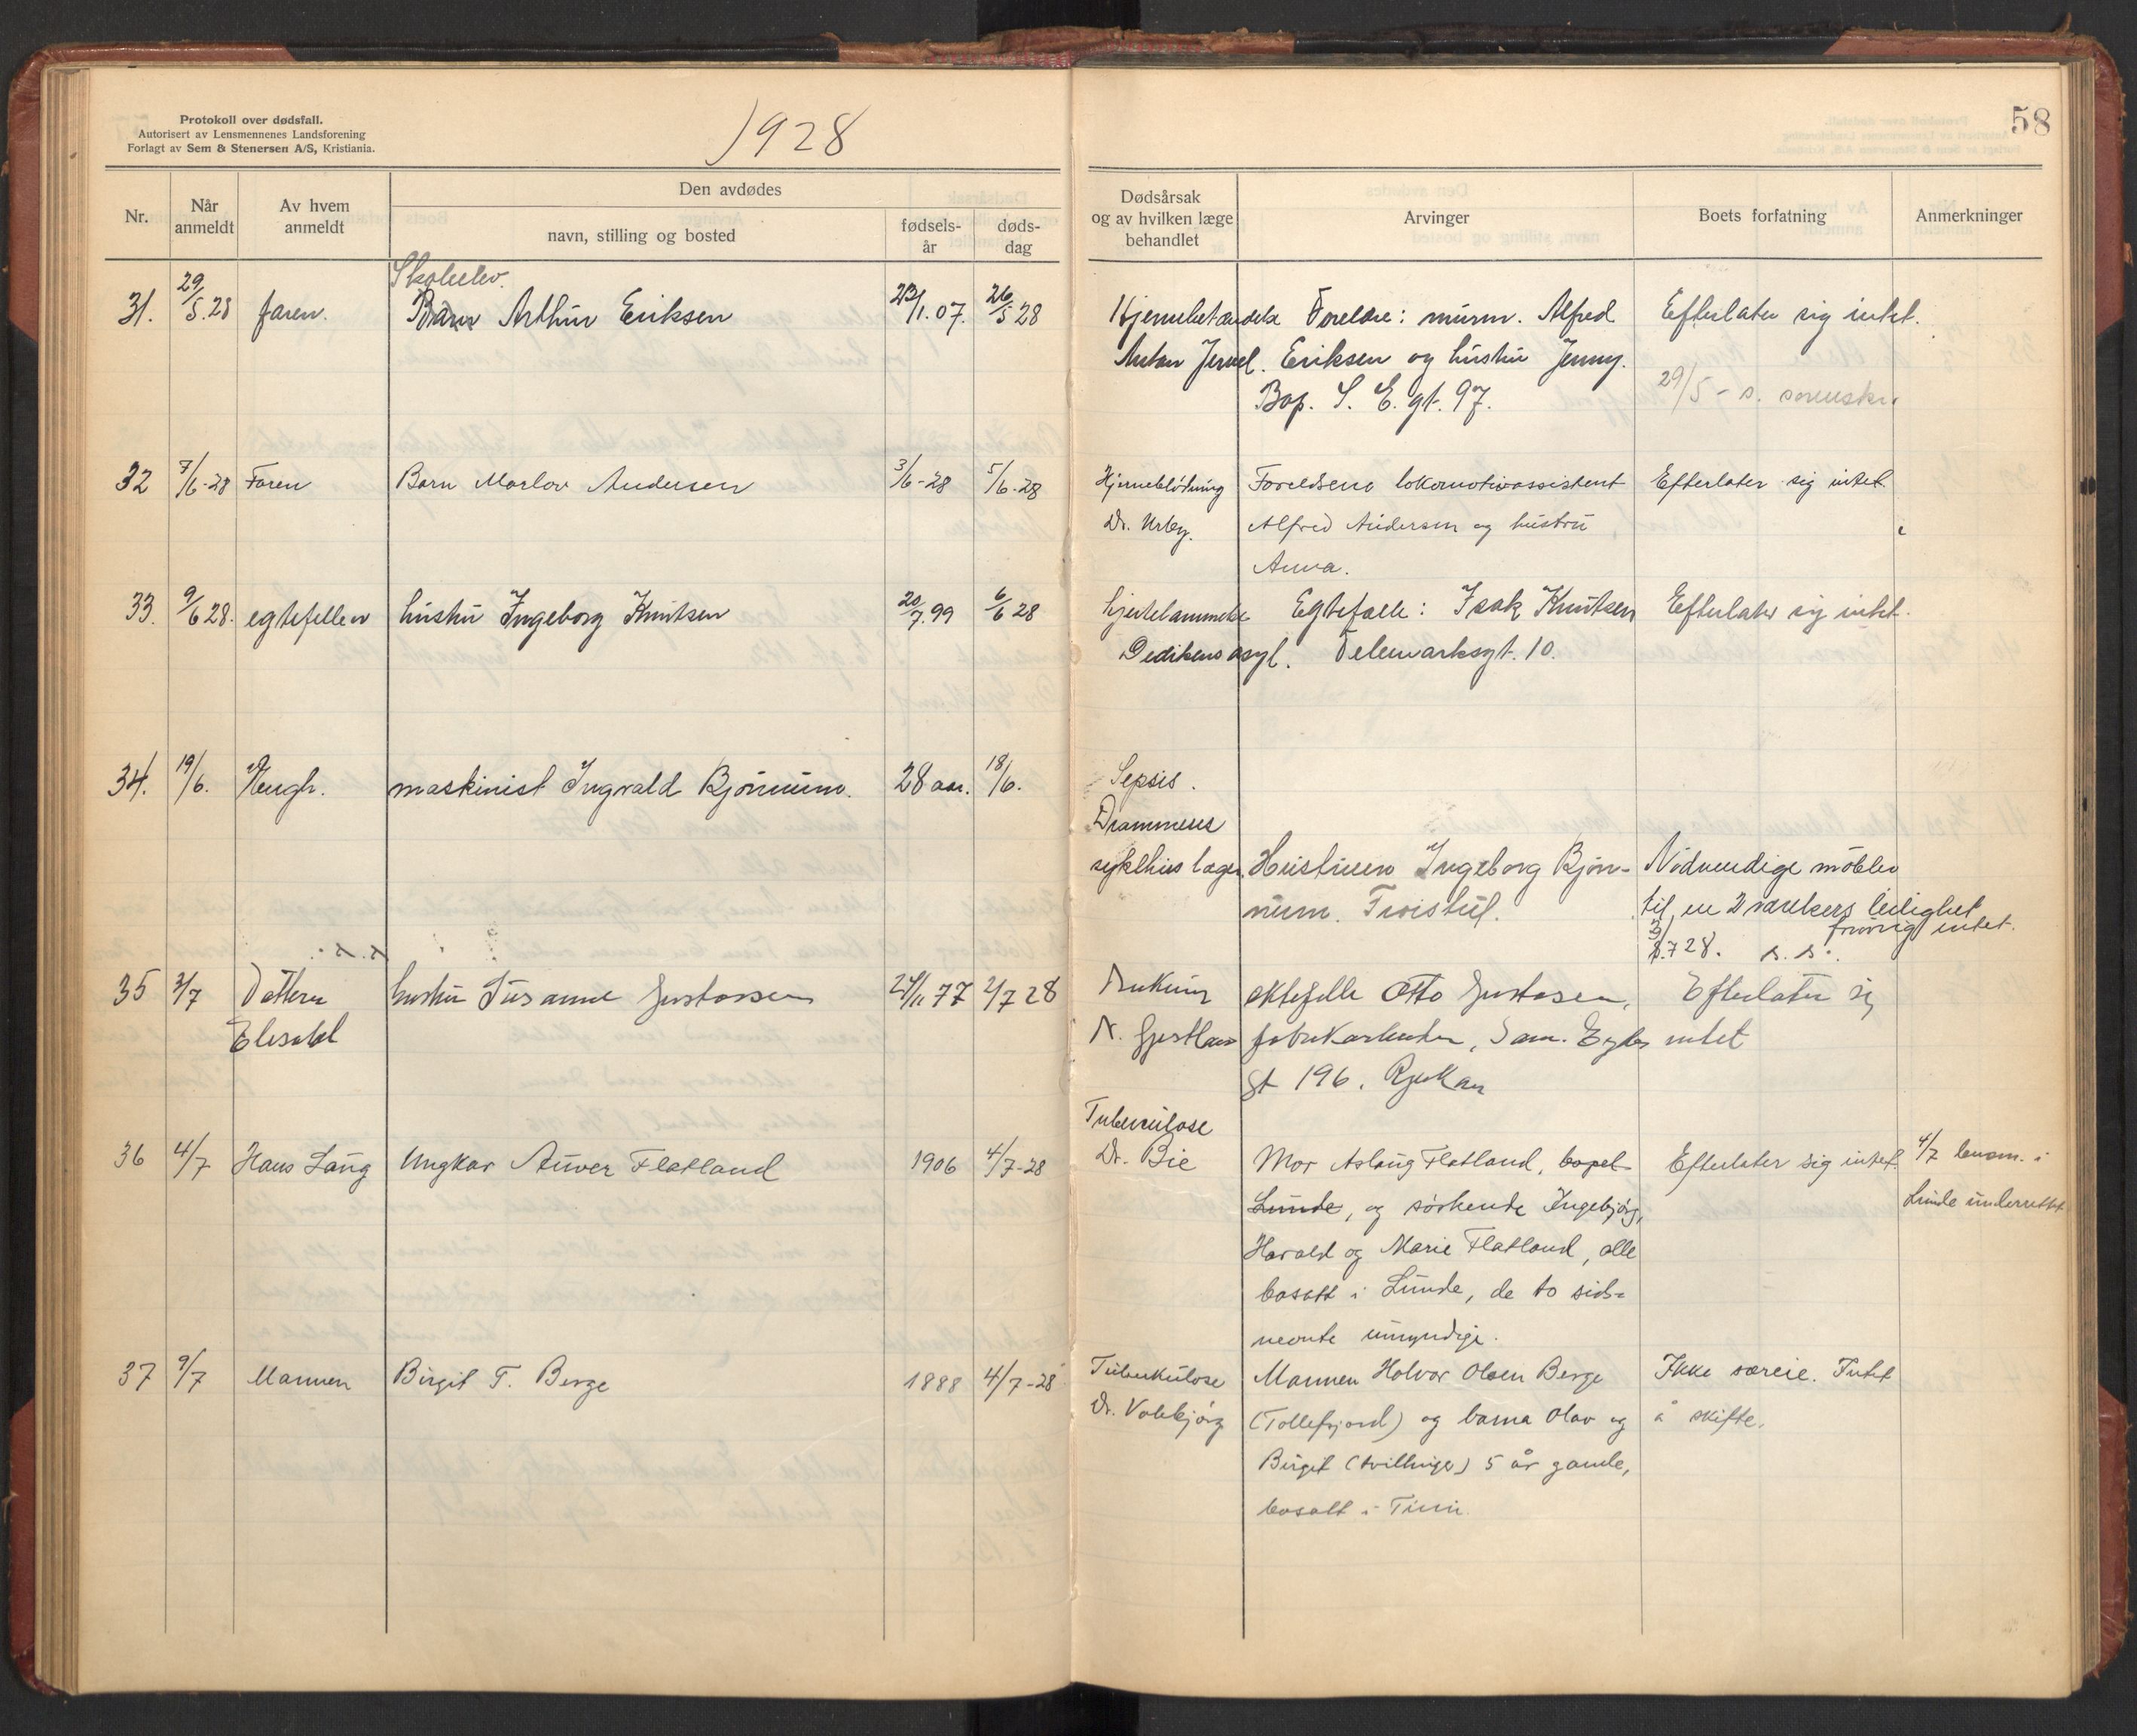 Protokoll over dødsfall.
Autorisert av Lensmennenes Landsforening
Forlagt av Sem & Stenersen A/S, Kristiania.
1928
58
Nr.
Når anmeldt
Av hvem anmeldt
Den avdødes
navn, stilling og bosted
fødsels-år
døds-dag
Dødsårsak og av hvilken læge behandlet
Arvinger
Boets forfatning
Anmerkninger
Skoleelev.
31. 29/5.28 faren. Barn Arthur Eriksen 23/1.07. 26/5 28 Hjernebetændelse Forelдre: murm. Alfred Efterlater sig intet.
Anton Jervel. Eriksen og hustru Jenny.
Bop. S. E. gt. 97. 29/5 - s. sorenskr.
32 7/6-28 Faren Barn Marlov Andersen 3/6-28 5/6-28 Hjerneblödning Foreldrene lokomotivassistent Efterlater sig intet.
Dr. Urby. Alfred Andersen og hustru
Anna.
33. 9/6 28. egtefellen hustru Ingeborg Knutsen 20/7.99 6/6 28 hjertelammelse Egtefælle: Isak Knutsen Efterlater sig intet.
Dedikens asyl. Telemarksgt. 10.
34. 19/6. Haugh. maskinist Ingvald Bjönnum. 28 aar. 18/6. Sepsis.
Drammens
sykehus læger. Hustruen Ingeborg Bjön- Nödvendige möbler
num. Froistul. til en 2 værelsers leilighet
forövrig intet.
3/8.728. s. s.
35 2/7 Datteren hustru Susanne Gustavsen 24/11 77 2/7 28 ektefelle Otto Gustavsen, Efterlater sig
Elisabet N. Gjestland fabrikarbeider, Sam. Eydes intet
gt 196. Rjukan
Tuberculose
36 4/7 Hans Laug Ungkar Anver Flatland 1906 4/7-28 Dr. Bie Mor Aslaug Flatland, bopel Efterlater sig intet. 4/7 lensm. i
Lunde, og söskende Ingebjörg, Lunde underrettet
Harald og Marie Flatland, alle
bosatt i Lunde, de to sids-
nevnte umyndige.
37 9/7 Mannen Birgit T. Berge 1888 4/7-28 Tuberkulose Mannen Halvor Olsen Berge Ikke særeie. Intet
Dr. Valebjörg (Tollefsjord) og barna Olav og å skifte.
Birgit (tvillinger) 5 år gamle,
bosatt i Tinn.